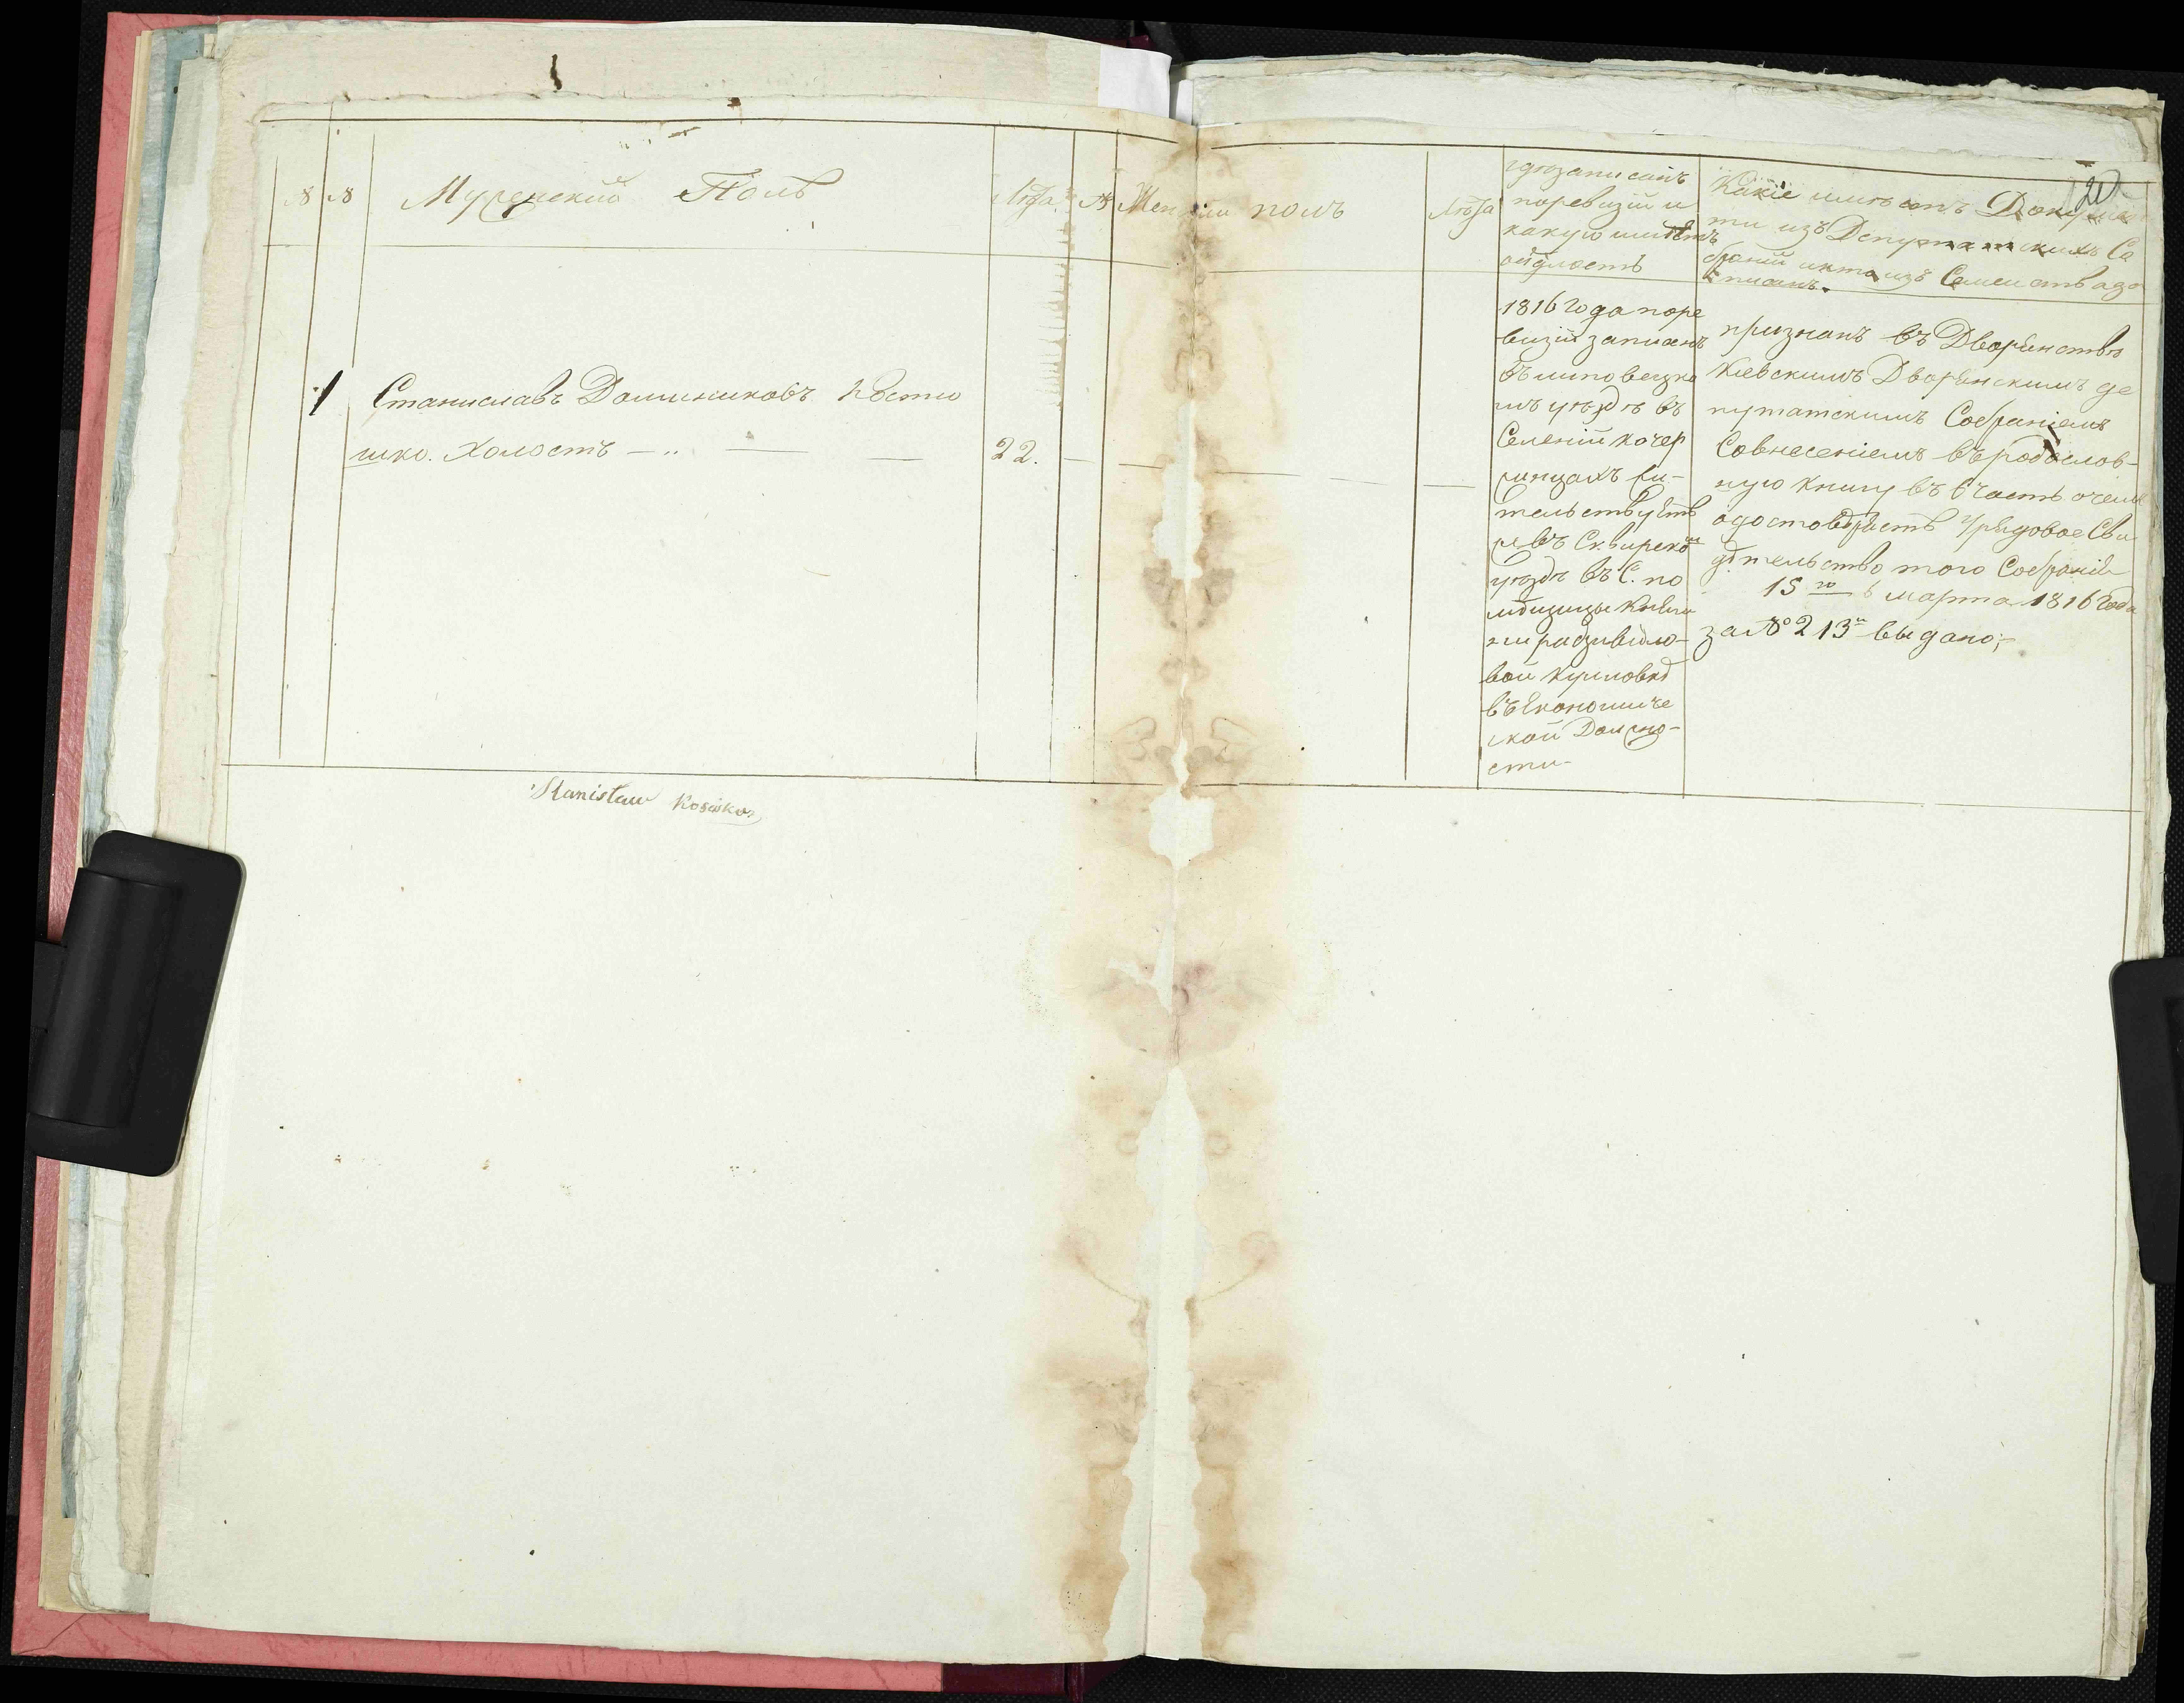 120
№ №
Мужеский Полъ
Лѣта
№
Женскій полъ
Лѣта
гдѣ записанъ
по ревизіи и
какую имѣетъ
осѣдлость
Какіе имѣетъ Докумен
ти изъ Депутатскихъ Со
браній и кто изъ Семейства до
писанъ.
1
Станиславъ Доминиковъ Костю
шко. Холостъ
22.
1816 Года по ре
визіи записанъ
въ липовецко
мъ уѣздѣ въ
Селеніи кочер
жинцахъ жи-
тельствуетъ
же въ Сквирском
уѣздѣ въ С. по
Княги
ни радзивило-
вой
въ Економиче
ской Должно-
сти-
признанъ въ Дворянствѣ
Кіевскимъ Дворянскимъ де
путатскимъ Собраніемъ
Совнесеніемъ въ родослов-
ную книгу въ 1 часть о чемъ
Урядовое Сви
дѣтельство того Собранія
15 го марта 1816 Года
за № 213 м выдано;-
Stanisław Kosciuszko